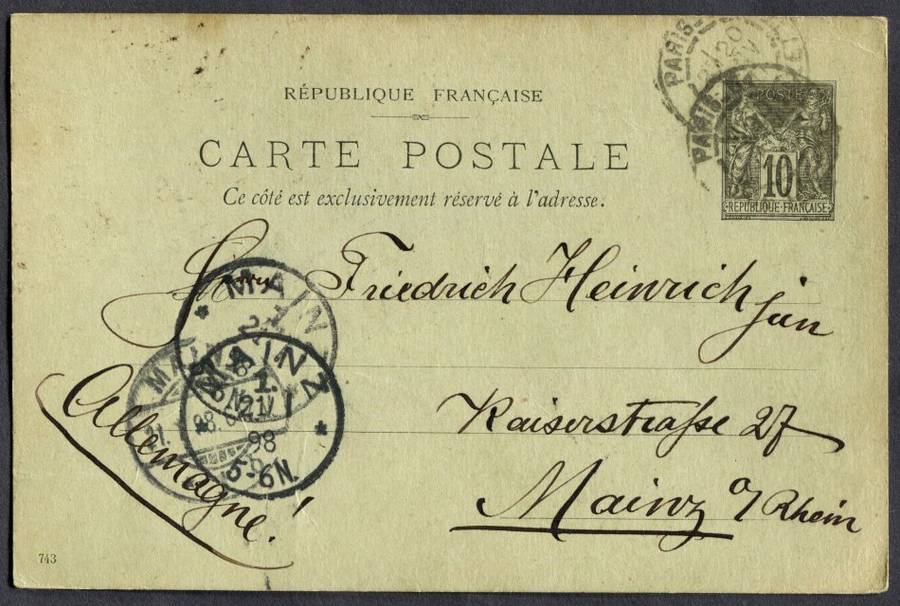 RÉPUBLIQUE FRANÇAISE
CARTE POSTALE
Ce côté est exclusivement réservé à l'adresse.
PARIS
PARIS
POSTE
10
REPUBLIQUE FRANÇAISE
Herrn Friedrich Heinrich jun
Kaiserstraße 27
Mainz a/Rhein
Allemagne!
MAINZ
MAINZ
1.
21/1
98
5-6N.
743